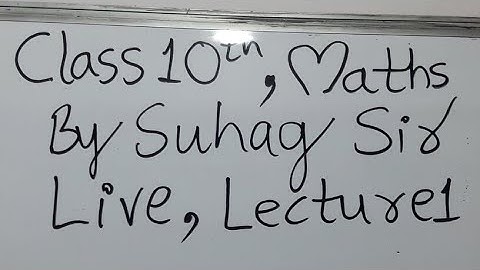 Class 10th, Maths
By Suhag Sir
Live, Lecture1